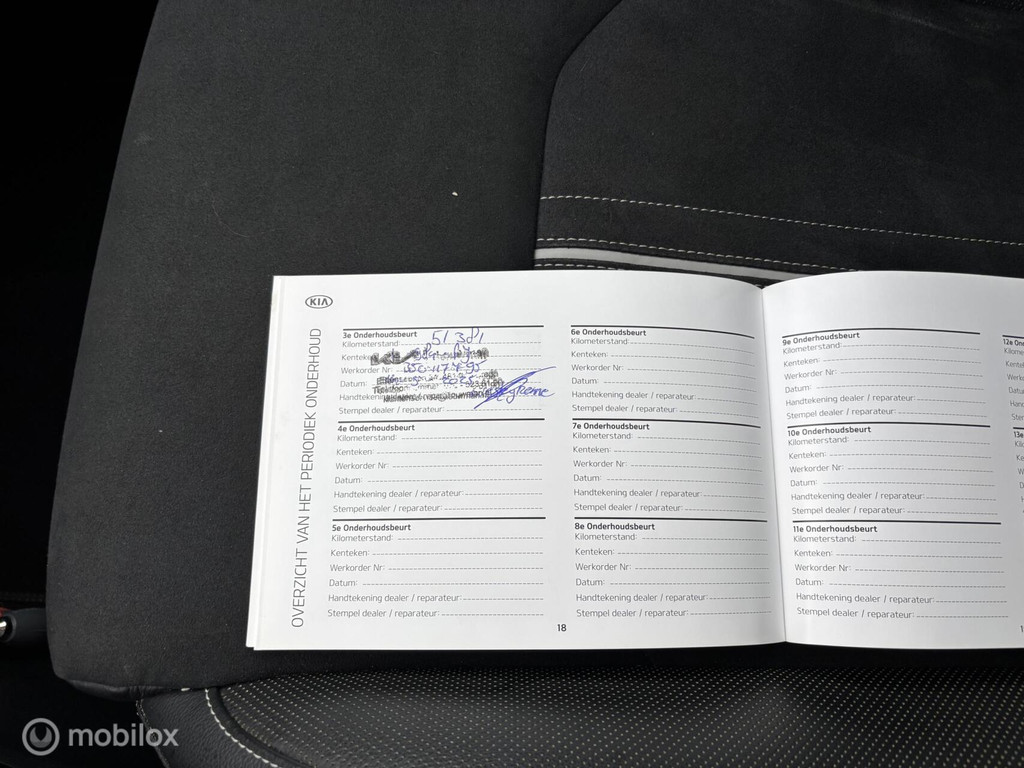 KIA
OVERZICHT VAN HET PERIODIEK ONDERHOUD
3e Onderhoudsbeurt
Kilometerstand: 51381
Kenteken:
Werkorder Nr:
Datum:
Handtekening dealer / reparateur:
Stempel dealer / reparateur:
4e Onderhoudsbeurt
Kilometerstand:
Kenteken:
Werkorder Nr:
Datum:
Handtekening dealer / reparateur:
Stempel dealer / reparateur:
5e Onderhoudsbeurt
Kilometerstand:
Kenteken:
Werkorder Nr:
Datum:
Handtekening dealer / reparateur:
Stempel dealer / reparateur:
6e Onderhoudsbeurt
Kilometerstand:
Kenteken:
Werkorder Nr:
Datum:
Handtekening dealer / reparateur:
Stempel dealer / reparateur:
7e Onderhoudsbeurt
Kilometerstand:
Kenteken:
Werkorder Nr:
Datum:
Handtekening dealer / reparateur:
Stempel dealer / reparateur:
8e Onderhoudsbeurt
Kilometerstand:
Kenteken:
Werkorder Nr:
Datum:
Handtekening dealer / reparateur:
Stempel dealer / reparateur:
18
9e Onderhoudsbeurt
Kilometerstand:
Kenteken:
Werkorder Nr:
Datum:
Handtekening dealer / reparateur:
Stempel dealer / reparateur:
10e Onderhoudsbeurt
Kilometerstand:
Kenteken:
Werkorder Nr:
Datum:
Handtekening dealer / reparateur:
Stempel dealer / reparateur:
11e Onderhoudsbeurt
Kilometerstand:
Kenteken:
Werkorder Nr:
Datum:
Handtekening dealer / reparateur:
Stempel dealer / reparateur:
12e
13e
mobilox